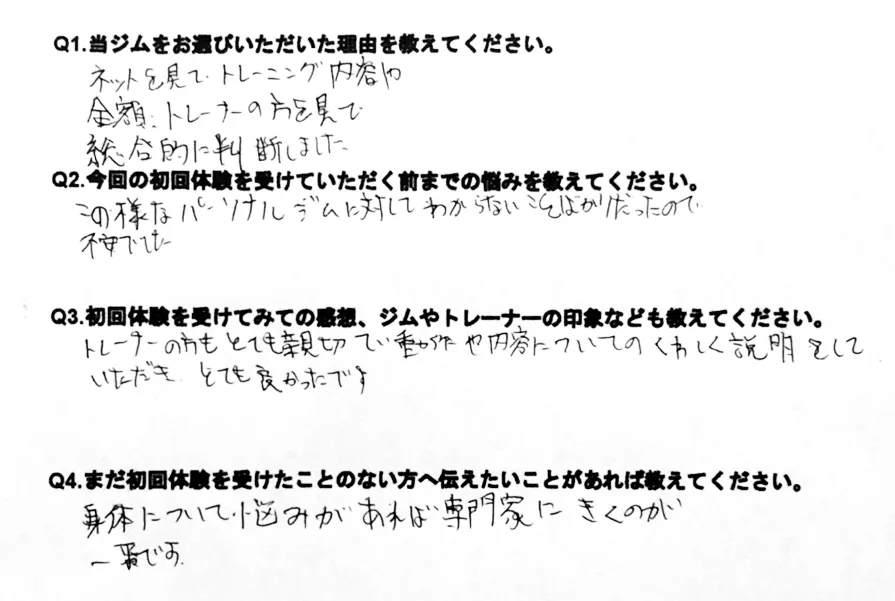 Q1.当ジムをお選びいただいた理由を教えてください。
ネットを見て、トレーニング内容や
金額、トレーナーの方を見て
総合的に判断しました
Q2.今回の初回体験を受けていただく前までの悩みを教えてください。
この様なパーソナルジムに対してわからないことばかりだったので
不安でした
Q3.初回体験を受けてみての感想、ジムやトレーナーの印象なども教えてください。
トレーナーの方もとても親切で動かし方や内容についてのくわしく説明をして
いただき、とても良かったです
Q4.まだ初回体験を受けたことのない方へ伝えたいことがあれば教えてください。
身体について悩みがあれば専門家にきくのが
一番です。